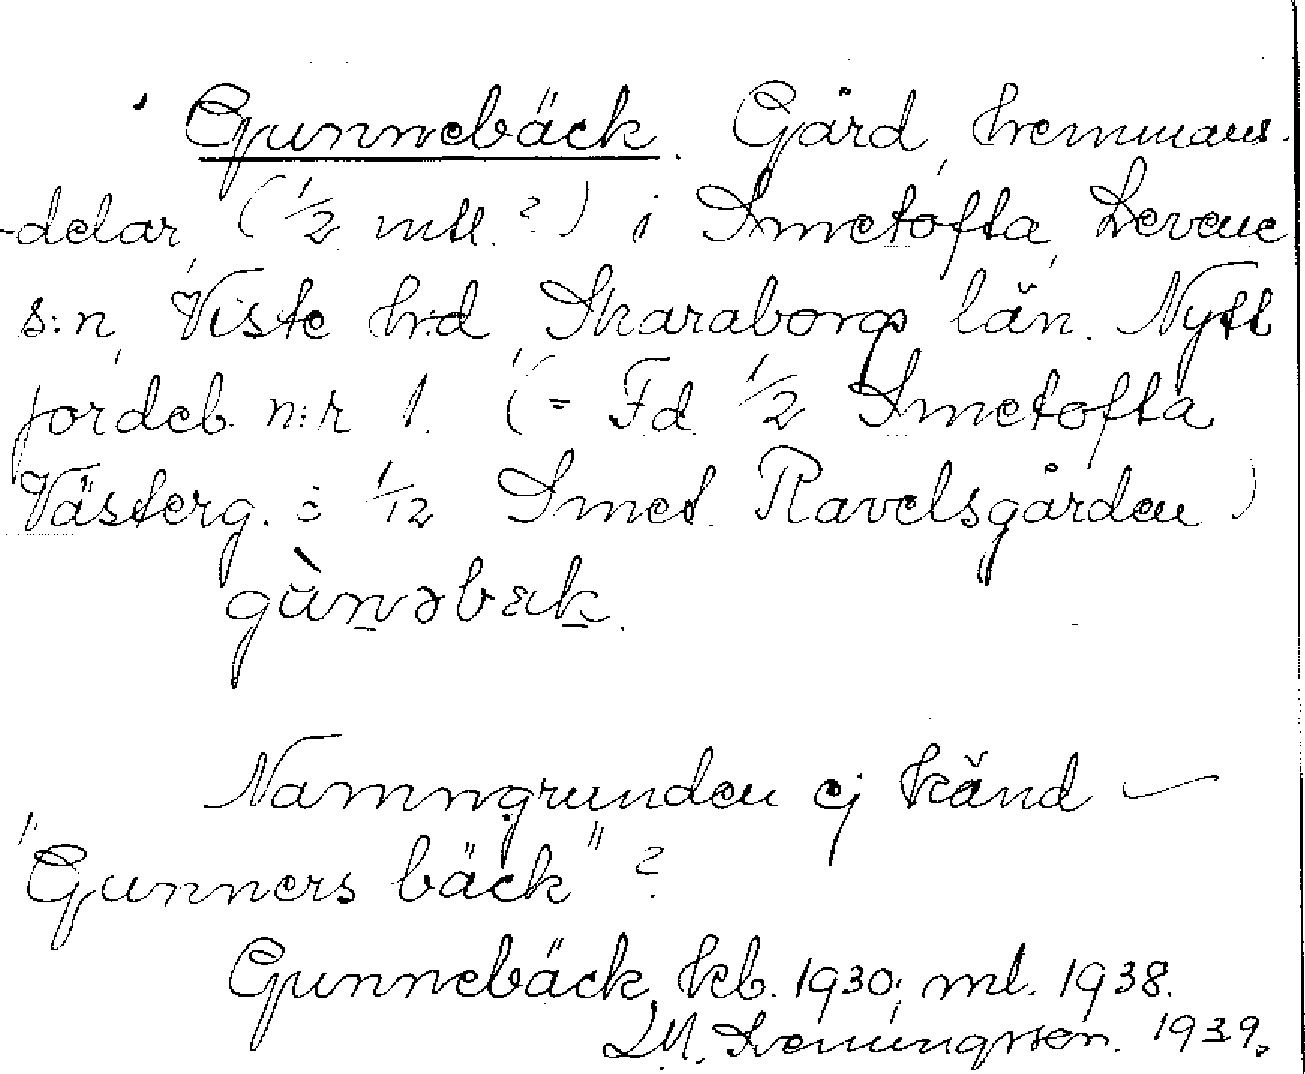 Gunnebäck. Gård, hemmans-
-delar, (1/2 mtl. ?) i Smetofta, Levene
s:n, Viste hrd, Skaraborgs län. Nytt
jordeb. n:r 1. (= Fd. 1/2 Smetofta
Västerg. o 1/12 Smet. Ravelsgården)
gùnəbæk.
Namngrunden ej känd —
"Gunners bäck" ?
Gunnebäck, kb. 1930; ml. 1938.
1939.